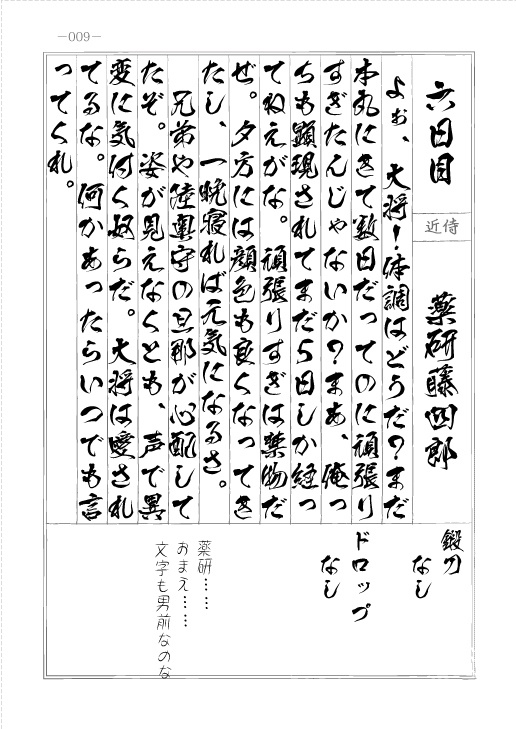 ―009―
六日目
近侍
薬研藤四郎
よぉ、大将！体調はどうだ？まだ
本丸にきて数日だってのに頑張り
すぎたんじゃないか？まあ、俺っ
ちも顕現されてまだ５日しか経っ
てねえがな。頑張りすぎは禁物だ
ぜ。夕方には顔色も良くなってき
たし、一晩寝れば元気になるさ。
兄弟や陸奥守の旦那が心配して
たぞ。姿が見えなくとも、声で異
変に気付く奴らだ。大将は愛され
てるな。何かあったらいつでも言
ってくれ。
鍛刀
なし
ドロップ
なし
薬研……
おまえ……
文字も男前なのな